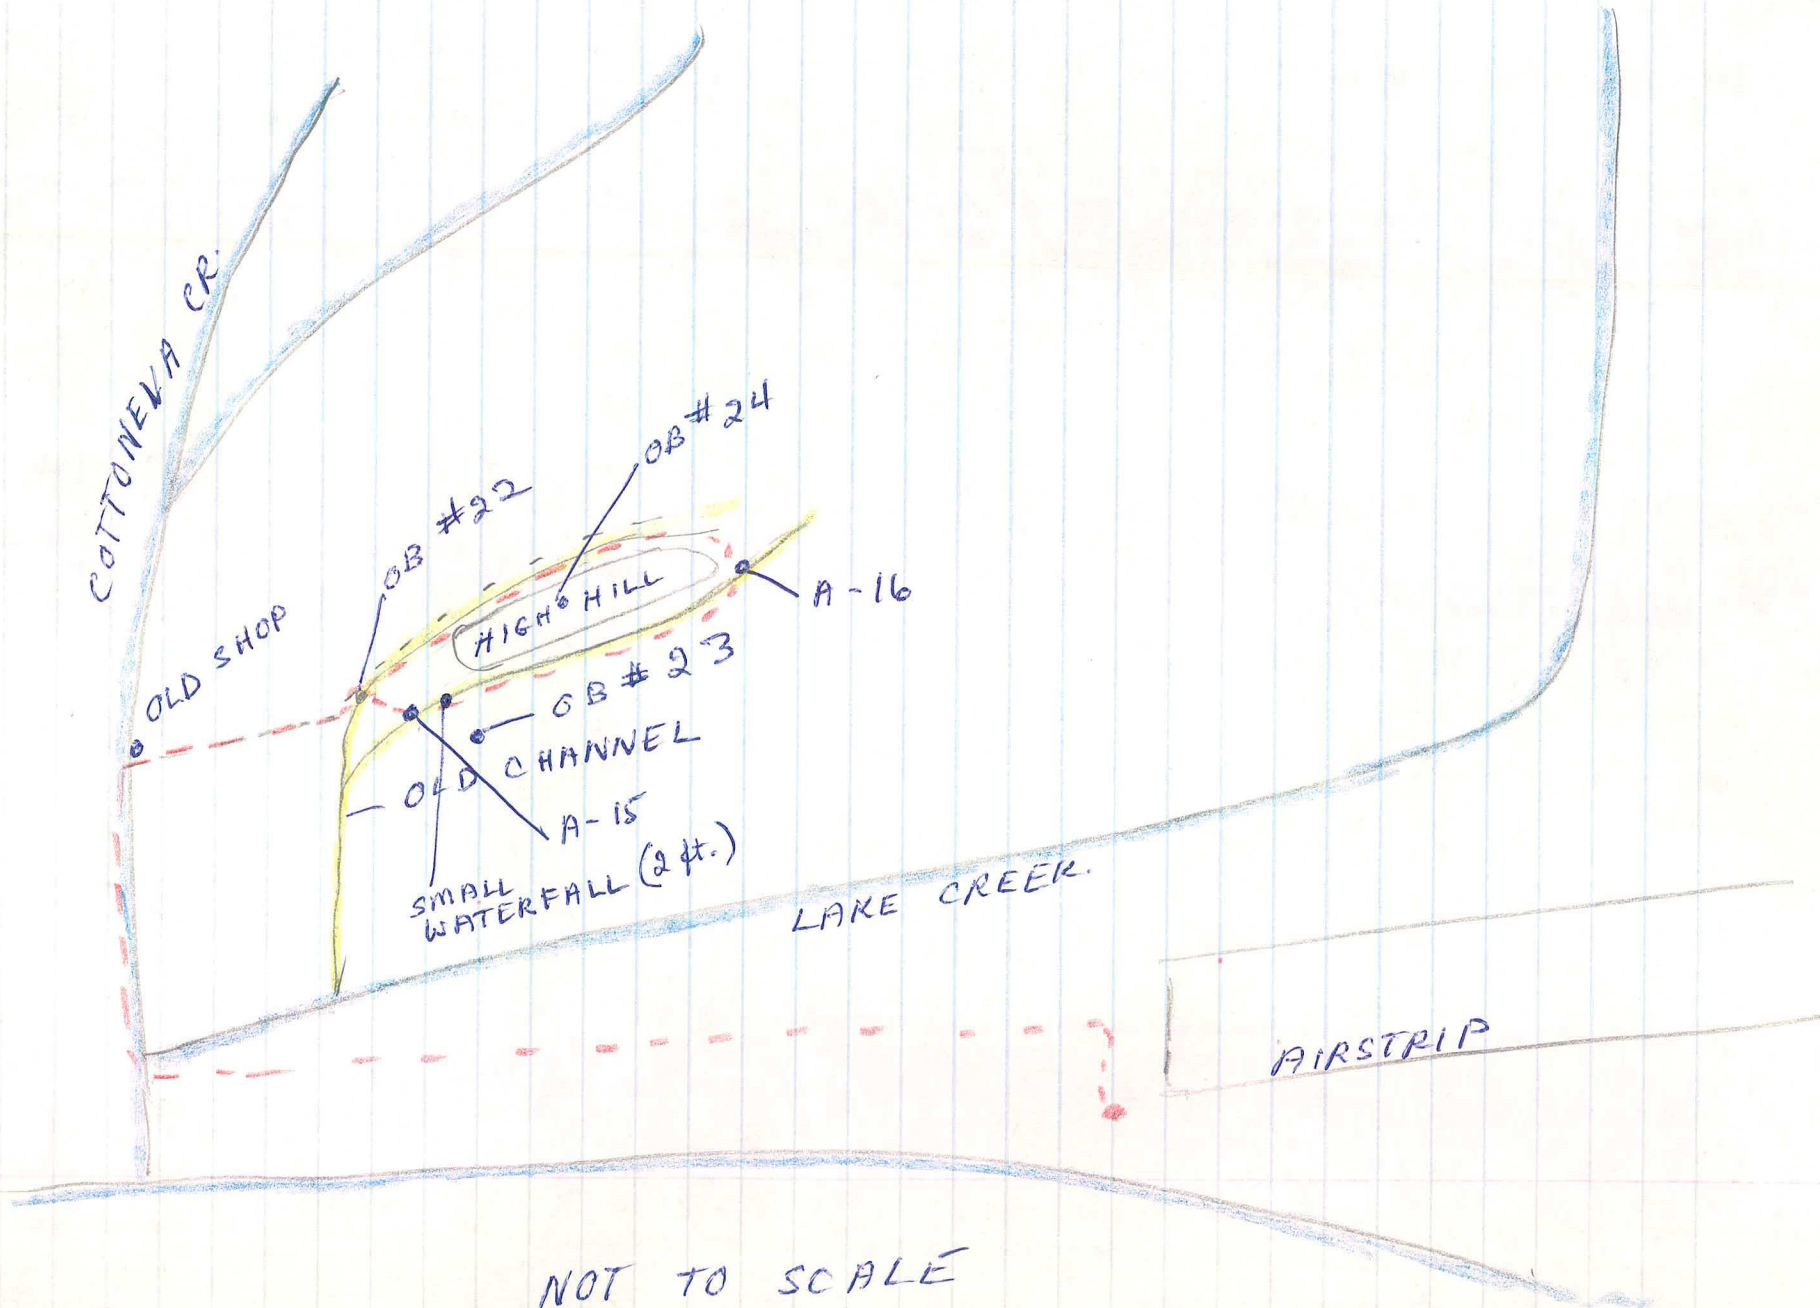 COTTONEVA CR.
OB #24
OB #22
HIGH HILL
A-16
OLD SHOP
OB #23
OLD CHANNEL
A-15
SMALL
WATERFALL (2 ft.)
LAKE CREEK.
AIRSTRIP
NOT TO SCALE